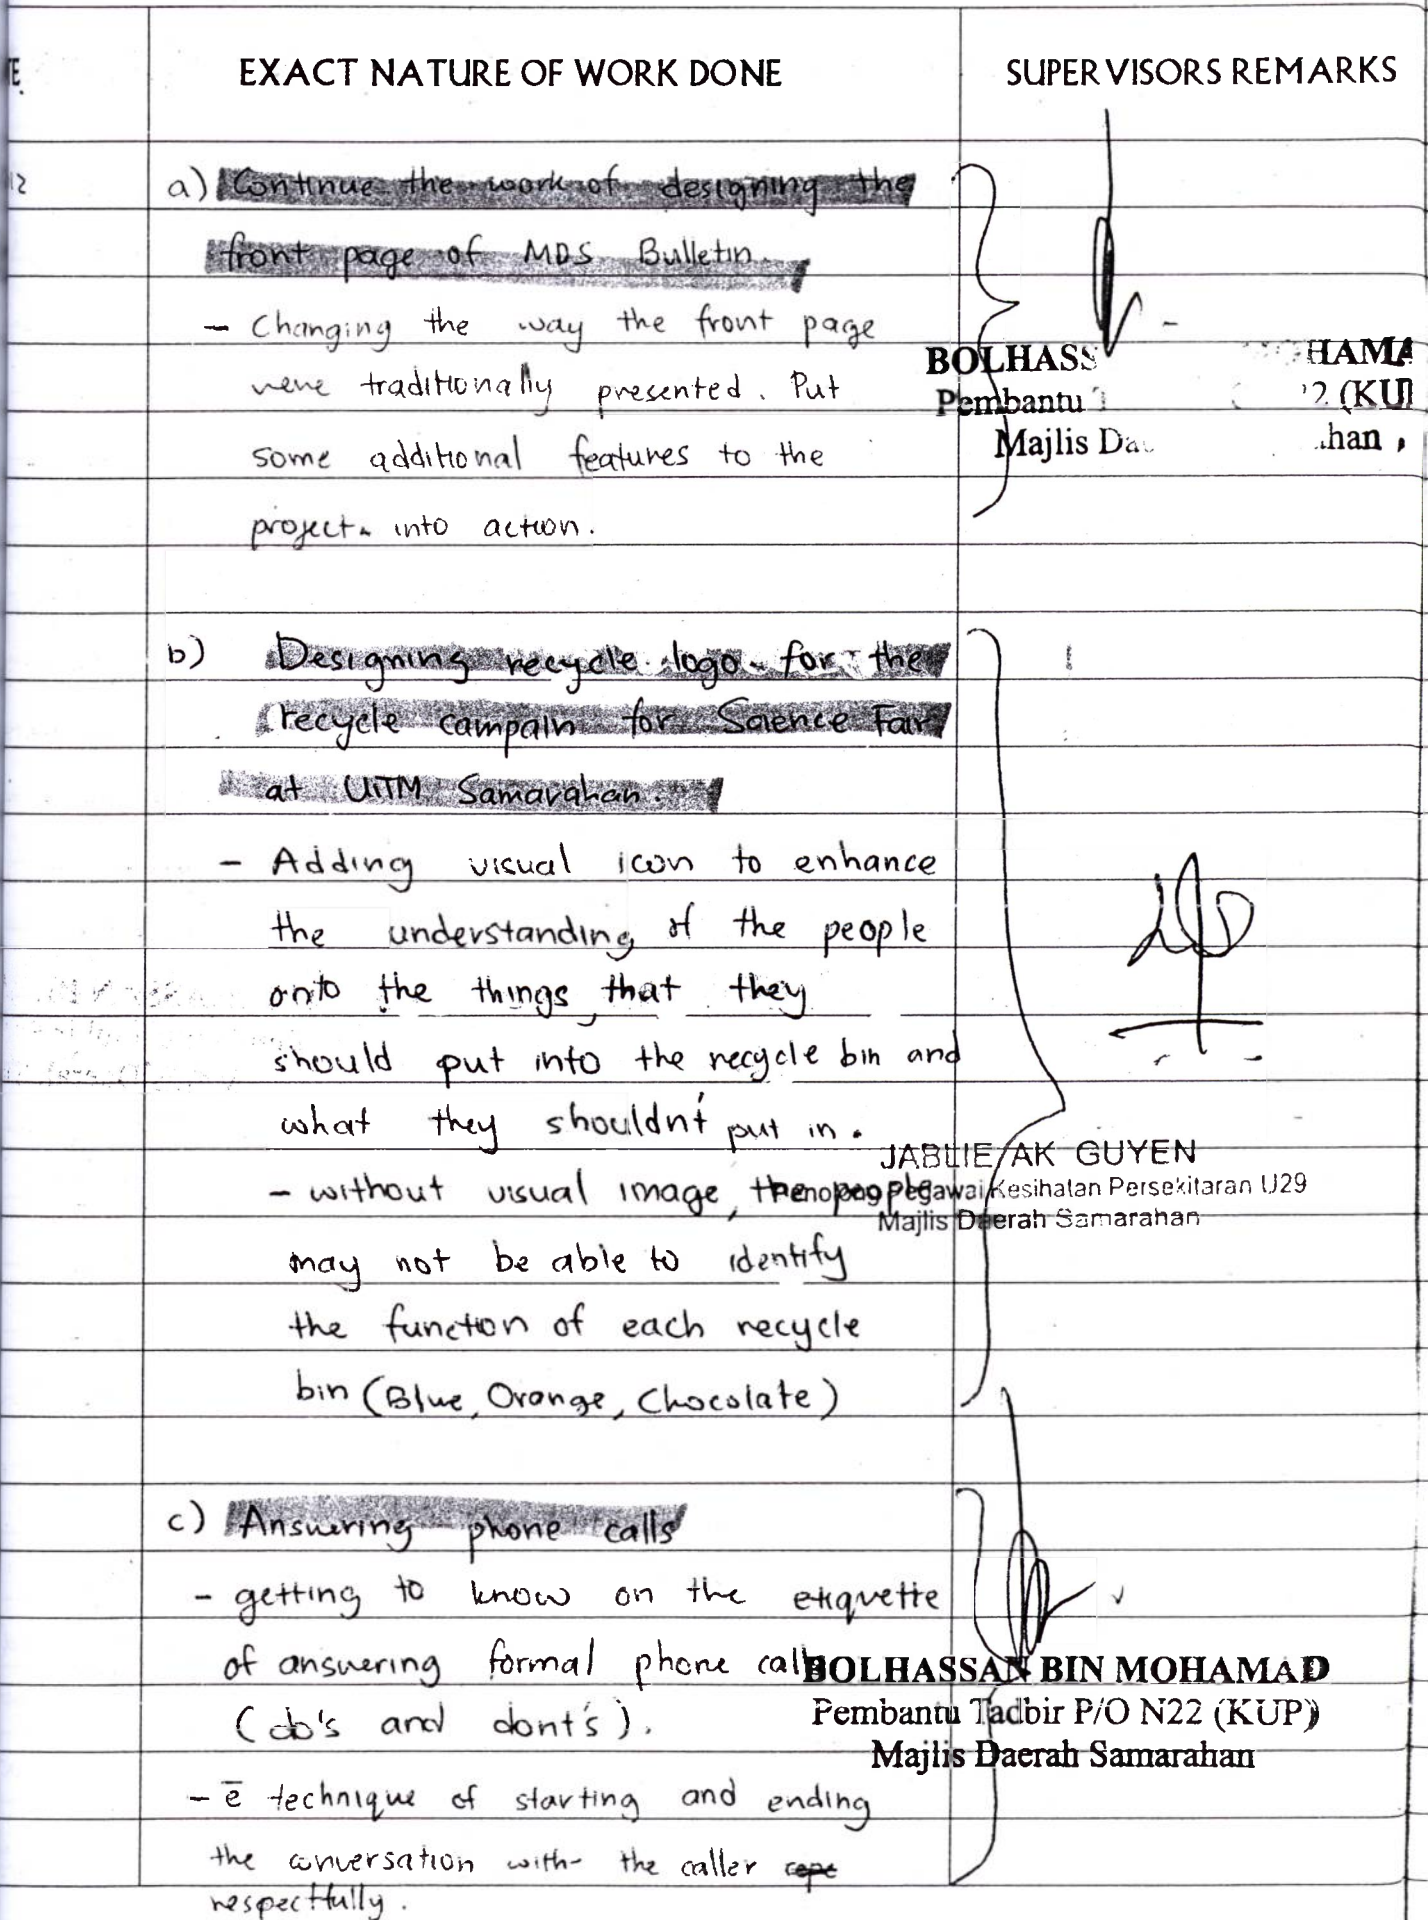 EXACT NATURE OF WORK DONE
SUPERVISORS REMARKS
12
a) Continue the work of designing the
front page of MDS Bulletin.
- Changing the way the front page
were traditionally presented. Put
some additional features to the
project. into action.
BOLHASS HAMA
Pembantu 2 (KUP
Majlis Da han
b) Designing recycle logo for the
recycle campain for Science Fair
at UiTM Samarahan.
- Adding visual icon to enhance
the understanding of the people
onto the things that they
should put into the recycle bin and
what they shouldn't put in.
- without visual image, the people
may not be able to identify
the function of each recycle
bin (Blue, Orange, Chocolate)
JABLIE AK GUYEN
Penolong Pegawai Kesihatan Persekitaran U29
Majlis Daerah Samarahan
c) Answering phone calls
- getting to know on the etiquette
of answering formal phone calls
(do's and dont's).
- ē technique of starting and ending
the conversation with the caller
respectfully.
BOLHASSAN BIN MOHAMAD
Pembantu Tadbir P/O N22 (KUP)
Majlis Daerah Samarahan